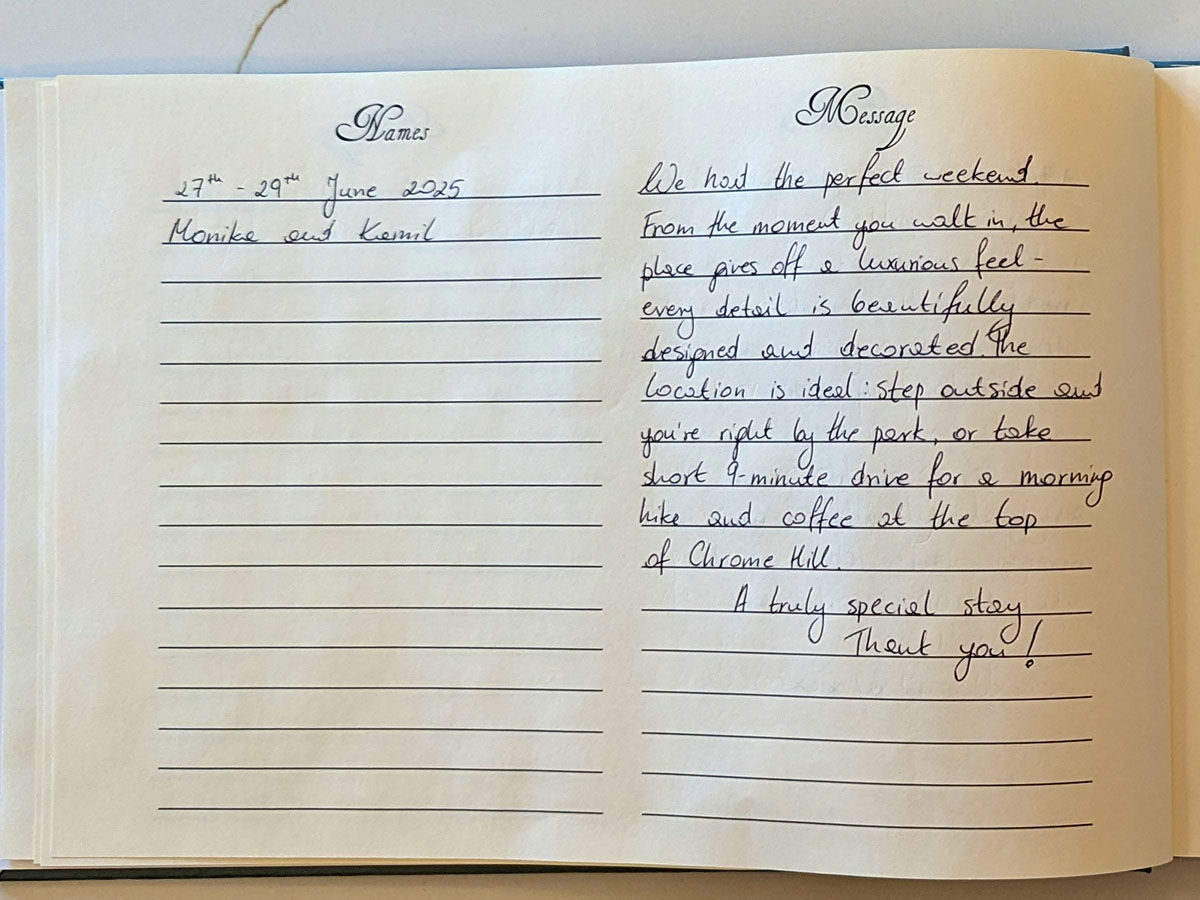 Names
27th - 29th June 2025
Monika and Kamil
Message
We had the perfect weekend.
From the moment you walk in, the
place gives off a luxurious feel -
every detail is beautifully
designed and decorated. The
location is ideal: step outside and
you're right by the park, or take
short 9-minute drive for a morning
hike and coffee at the top
of Chrome Hill.
A truly special stay
Thank you!